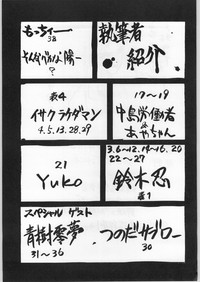 執筆者
紹介
もっちィー
38
?
表4
イサクラケダマン
4.5.13.28.29
17〜19
中島労働者
あやちゃん
21
Yuko
3.6〜12.14〜16.20
22〜27
鈴木忍
表1
スペシャル ゲスト
青樹零夢
31〜36
つのだサブロー
30